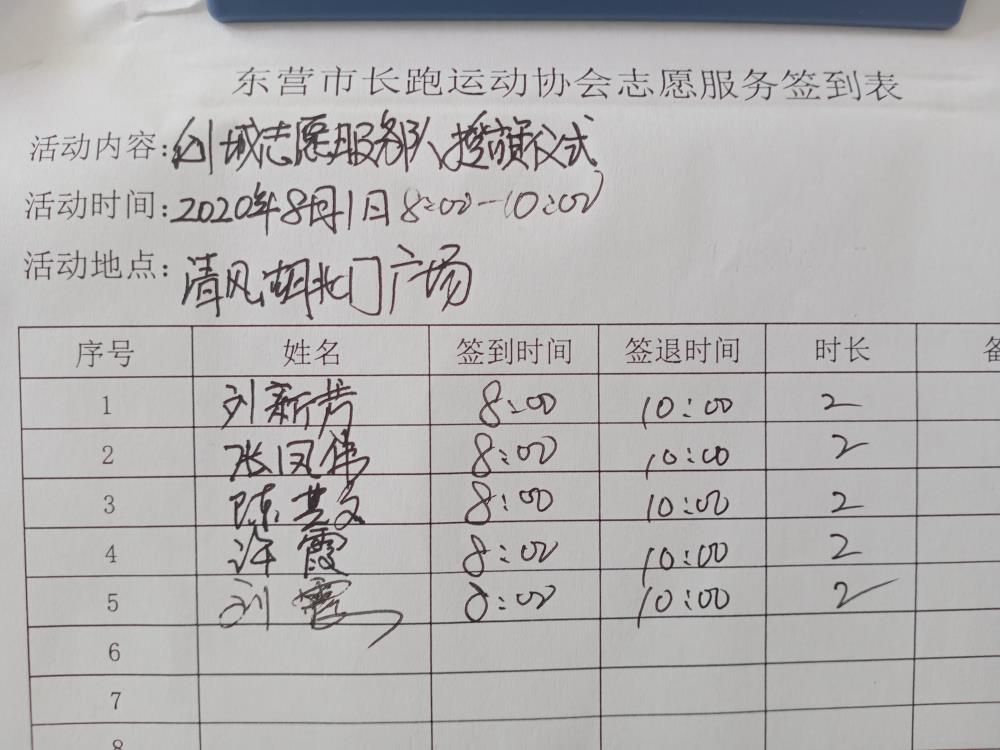 东营市长跑运动协会志愿服务签到表
活动内容:创城志愿服务队授旗仪式
活动时间:2020年8月1日8:00-10:00
活动地点:清风湖北门广场
序号 姓名 签到时间 签退时间 时长 备
1 刘新芳 8:00 10:00 2
2 张凤伟 8:00 10:00 2
3 陈其文 8:00 10:00 2
4 许霞 8:00 10:00 2
5 刘霞 8:00 10:00 2
6
7
8